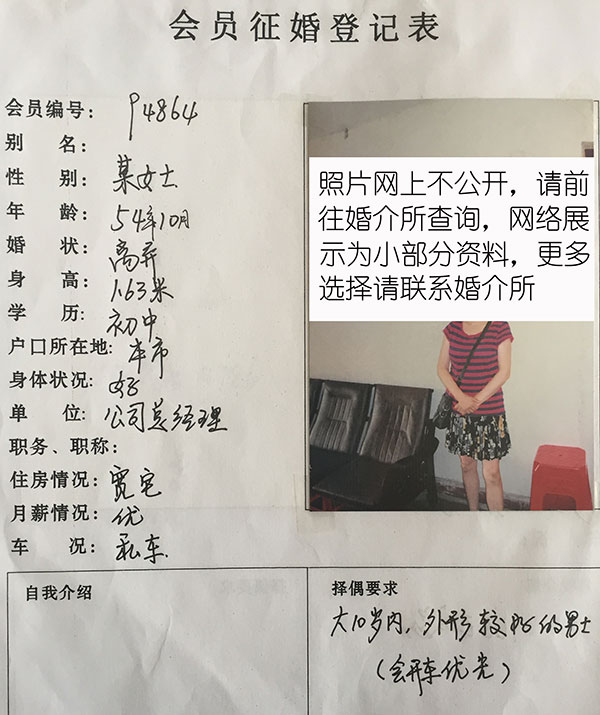 会员征婚登记表
会员编号: P4864
别 名:
性 别: 某女士
年 龄: 54年10月
婚 状: 离异
身 高: 1.63米
学 历: 初中
户口所在地: 本市
身体状况: 好
单 位: 公司总经理
职务、职称:
住房情况: 宽宅
月薪情况: 优
车 况: 私车
照片网上不公开，请前
往婚介所查询，网络展
示为小部分资料，更多
选择请联系婚介所
自我介绍
择偶要求
大10岁内，外形较好的男士
（会开车优先）